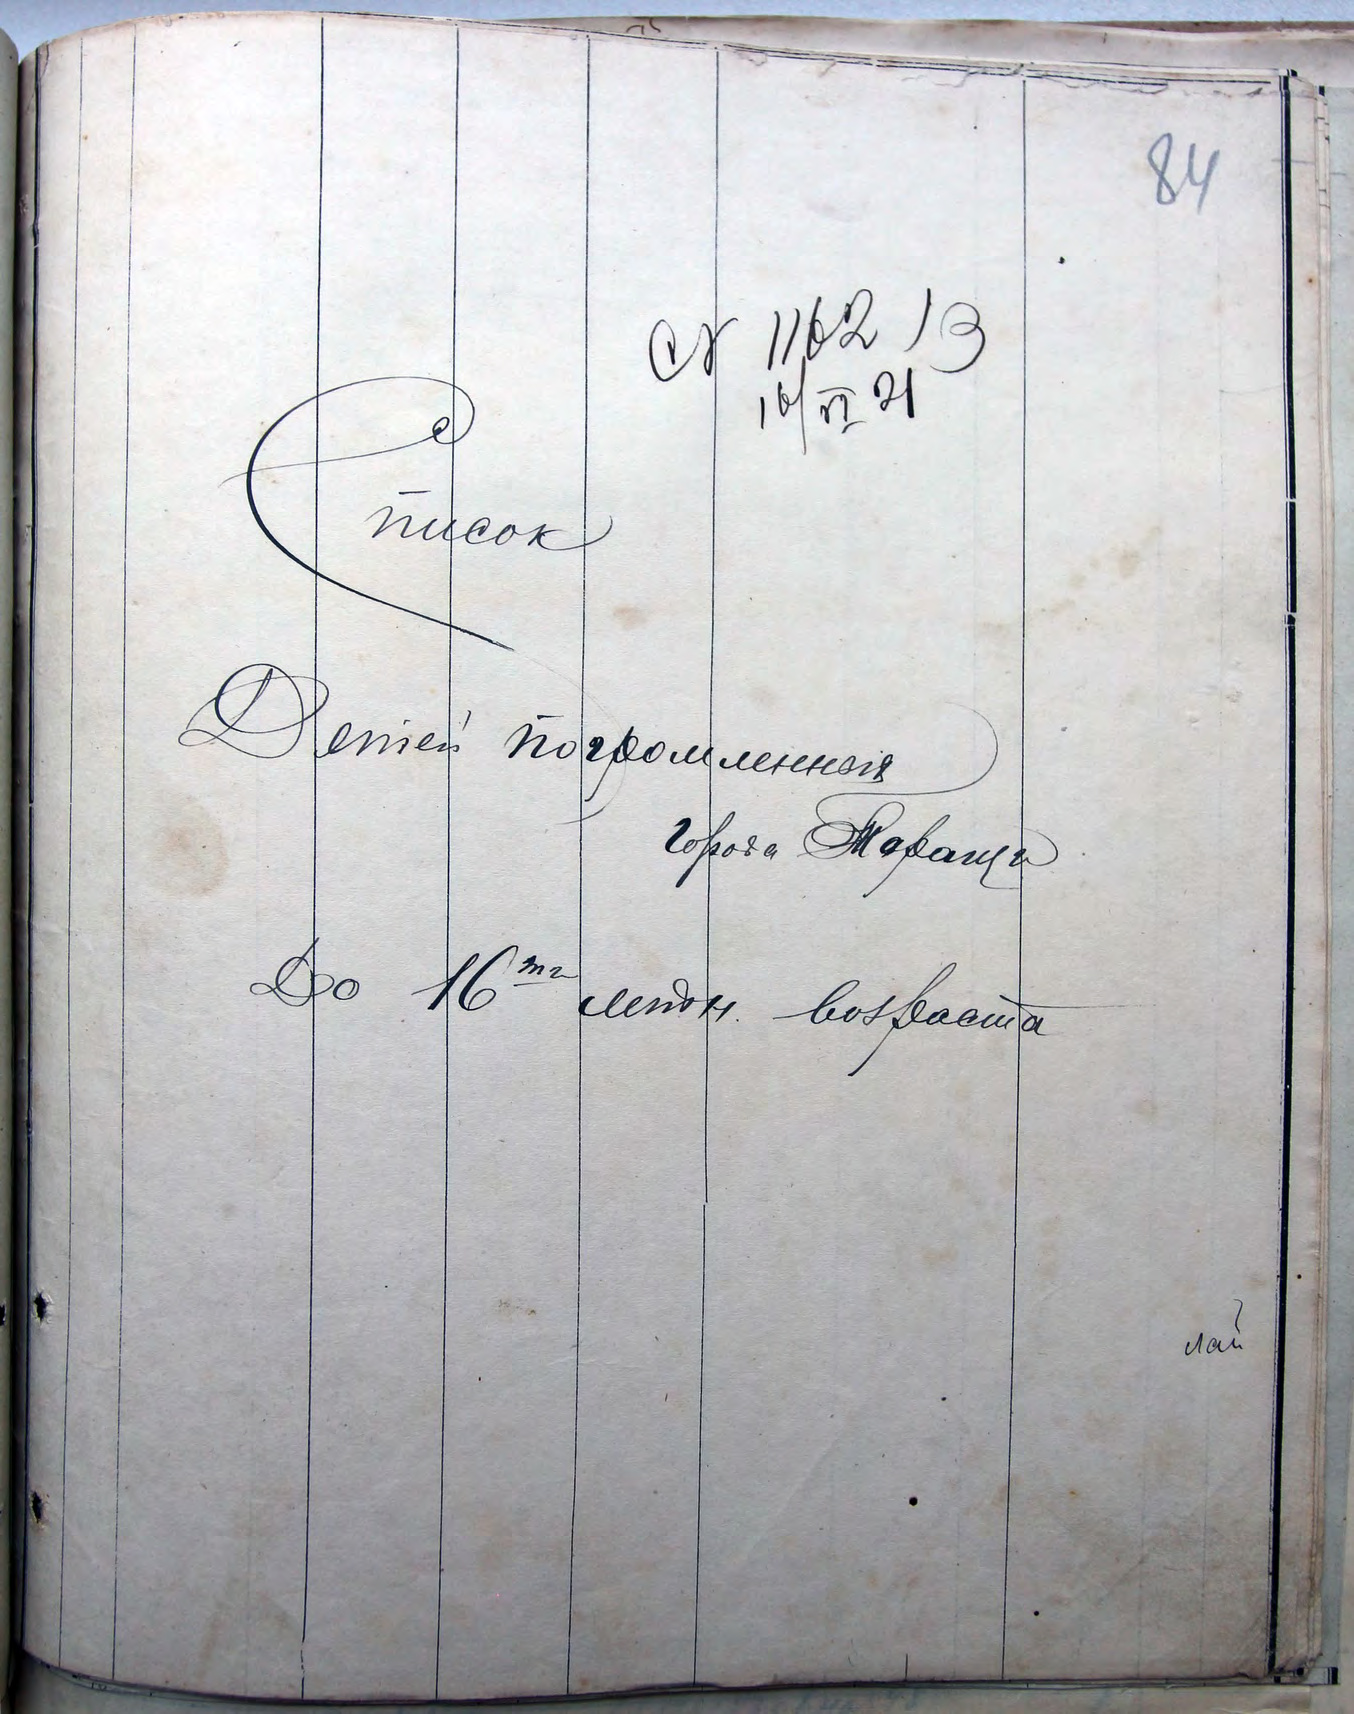 84
№ 1162/3
16/VI 21
Список
Детей погромленных
города Таращи
До 16ти летн. возраста
лай